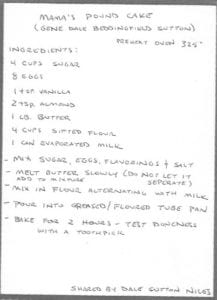 MAMA'S POUND CAKE
(GENE DALE BEDDINGFIELD SUTTON)
PREHEAT OVEN 325°
INGREDIENTS:
4 CUPS SUGAR
8 EGGS
1 tsp VANILLA
2 tsp ALMOND
1 LB. BUTTER
4 CUPS SIFTED FLOUR
1 CAN EVAPORATED MILK
- MIX SUGAR, EGGS, FLAVORINGS & SALT
- MELT BUTTER SLOWLY (DO NOT LET IT
ADD TO MIXTURE SEPERATE)
- MIX IN FLOUR ALTERNATING WITH MILK
- POUR INTO GREASED/FLOURED TUBE PAN
- BAKE FOR 2 HOURS - TEST DONENESS
WITH A TOOTHPICK
SHARED BY DALE SUTTON NILES